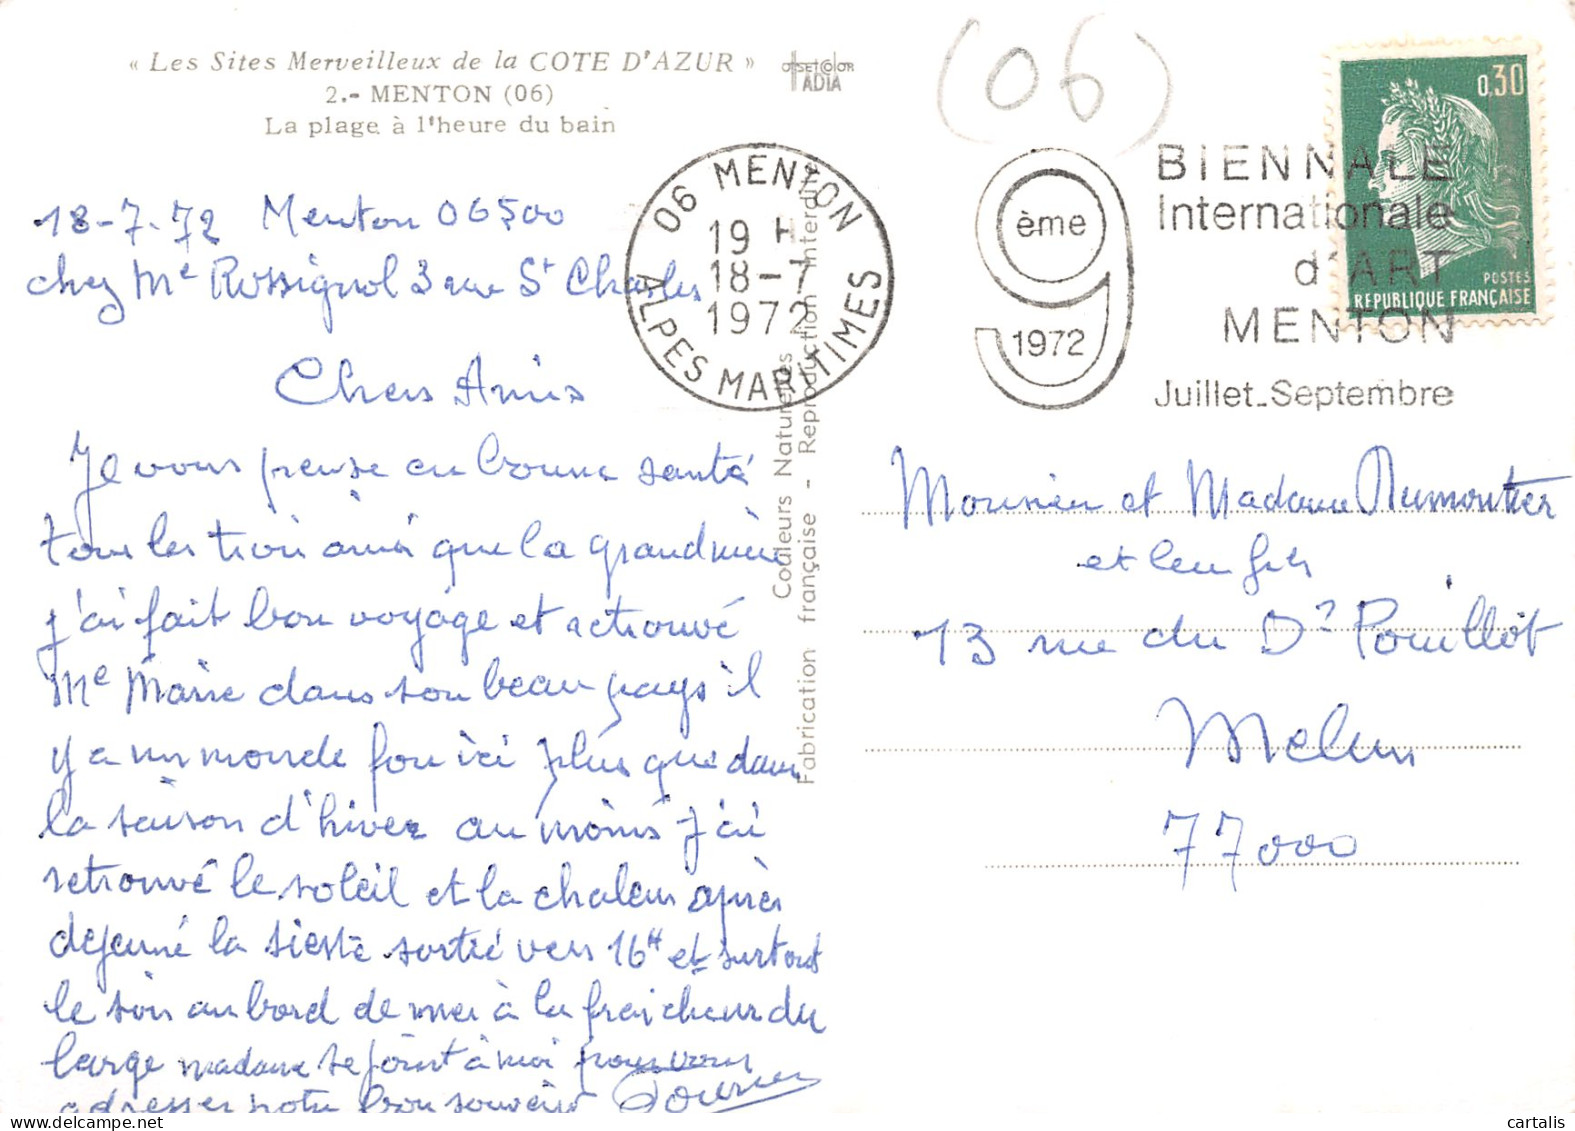 « Les Sites Merveilleux de la COTE D'AZUR »
2.- MENTON (06)
La plage à l'heure du bain
OFFSETCOLOR
ADIA
(06)
06 MENTON
19 H
18-7
1972
ALPES MARITIMES
9
ème
1972
BIENNALE
Internationale
d'ART
MENTON
Juillet-Septembre
0,30
POSTES
REPUBLIQUE FRANÇAISE
18-7-72 Menton 06500
chez Me Rossignol 3 rue St Charles
Chers Amis
Je vous pense en bonne santé
tous les trois ainsi que la grandmère
j'ai fait bon voyage et retrouvé
Me Marie dans son beau pays il
y a un monde fou ici plus que dans
la saison d'hiver au moins j'ai
retrouvé le soleil et la chaleur après
dejeuné la sieste sortie vers 16H et surtout
le soir au bord de mer à la fraicheur du
large madame se joint à moi pour vous
adresser notre bon souvenir
Couleurs Naturelles
Fabrication française - Reproduction interdite
Monsieur et Madame Dumontier
et leur fils
13 rue du Dr Pouillot
Melun
77000
cartalis